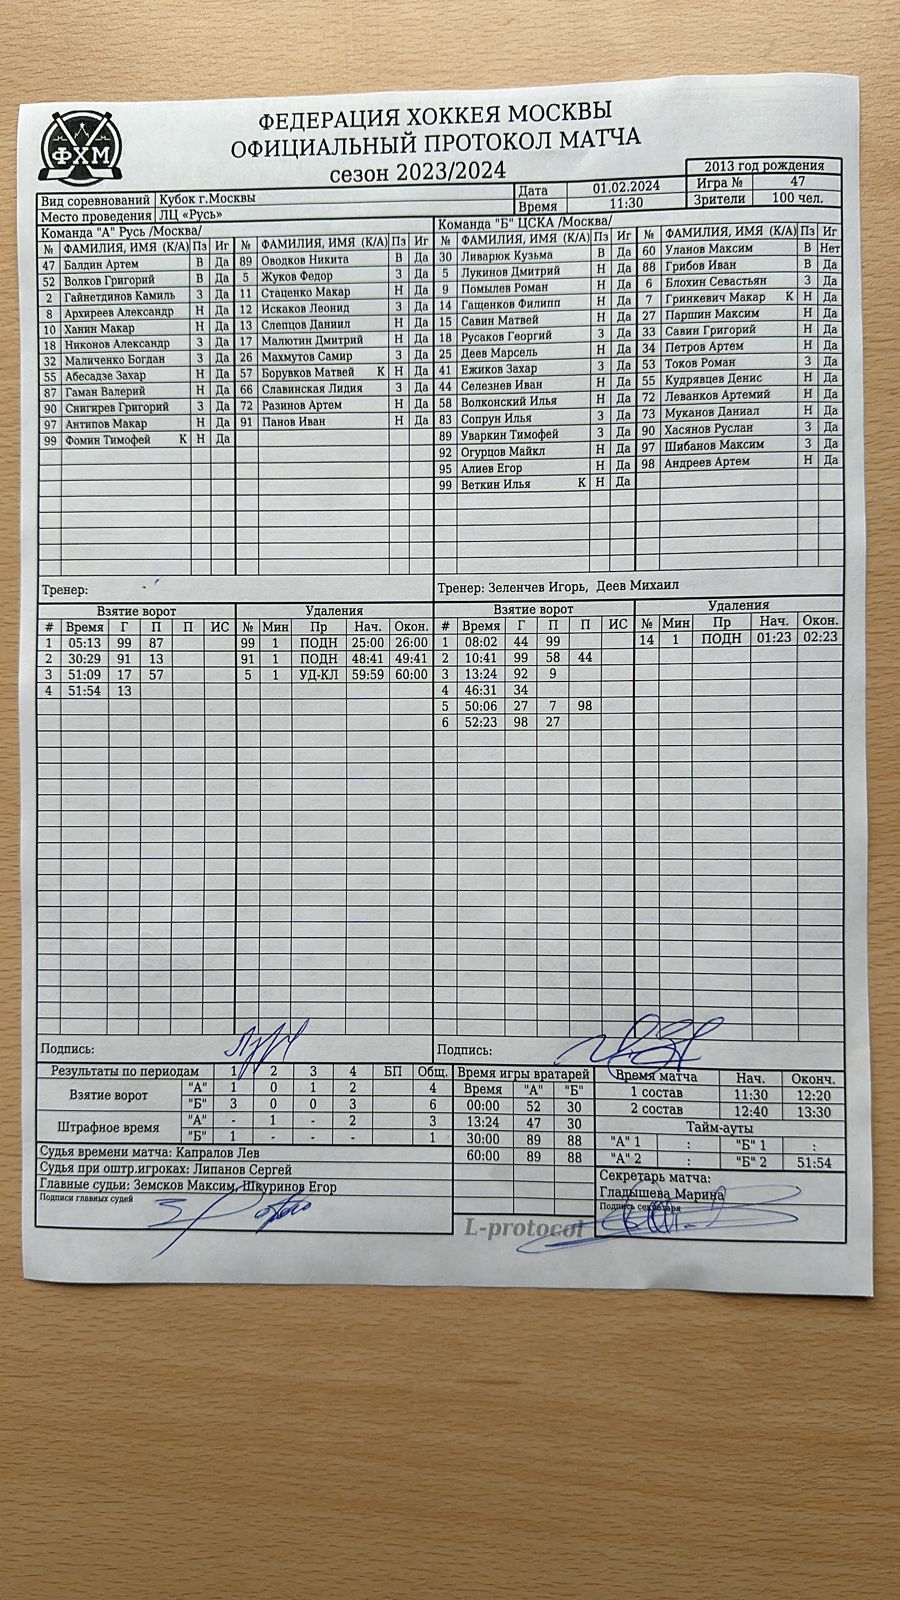 ФХМ
ФЕДЕРАЦИЯ ХОККЕЯ МОСКВЫ
ОФИЦИАЛЬНЫЙ ПРОТОКОЛ МАТЧА
сезон 2023/2024
2013 год рождения
Вид соревнований Кубок г.Москвы Дата 01.02.2024 Игра № 47
Место проведения ЛЦ «Русь» Время 11:30 Зрители 100 чел.
Команда "А" Русь /Москва/
№ ФАМИЛИЯ, ИМЯ (К/А) Пз Иг № ФАМИЛИЯ, ИМЯ (К/А) Пз Иг
47 Балдин Артем В Да 89 Оводков Никита В Да
52 Волков Григорий В Да 5 Жуков Федор З Да
2 Гайнетдинов Камиль З Да 11 Стаценко Макар Н Да
8 Архиреев Александр Н Да 12 Искаков Леонид З Да
10 Ханин Макар Н Да 13 Слепцов Даниил Н Да
18 Никонов Александр З Да 17 Малютин Дмитрий Н Да
32 Маличенко Богдан З Да 26 Махмутов Самир З Да
55 Абесадзе Захар Н Да 57 Борувков Матвей К Н Да
87 Гаман Валерий Н Да 66 Славинская Лидия З Да
90 Снигирев Григорий З Да 72 Разинов Артем Н Да
97 Антипов Макар Н Да 91 Панов Иван Н Да
99 Фомин Тимофей К Н Да
Тренер:
Команда "Б" ЦСКА /Москва/
№ ФАМИЛИЯ, ИМЯ (К/А) Пз Иг № ФАМИЛИЯ, ИМЯ (К/А) Пз Иг
30 Ливарюк Кузьма В Да 60 Уланов Максим В Нет
5 Лукинов Дмитрий Н Да 88 Грибов Иван В Да
9 Помылев Роман Н Да 6 Блохин Севастьян З Да
14 Гащенков Филипп Н Да 7 Гринкевич Макар К Н Да
15 Савин Матвей Н Да 27 Паршин Максим Н Да
18 Русаков Георгий З Да 33 Савин Григорий Н Да
25 Деев Марсель Н Да 34 Петров Артем Н Да
41 Ежиков Захар З Да 53 Токов Роман З Да
44 Селезнев Иван Н Да 55 Кудрявцев Денис Н Да
58 Волконский Илья Н Да 72 Леванков Артемий Н Да
83 Сопрун Илья З Да 73 Муканов Даниал Н Да
89 Уваркин Тимофей З Да 90 Хасянов Руслан З Да
92 Огурцов Майкл Н Да 97 Шибанов Максим З Да
95 Алиев Егор Н Да 98 Андреев Артем Н Да
99 Веткин Илья К Н Да
Тренер: Зеленчев Игорь, Деев Михаил
Взятие ворот Удаления
# Время Г П П ИС № Мин Пр Нач. Окон.
1 05:13 99 87 99 1 ПОДН 25:00 26:00
2 30:29 91 13 91 1 ПОДН 48:41 49:41
3 51:09 17 57 5 1 УД-КЛ 59:59 60:00
4 51:54 13
Подпись:
Взятие ворот Удаления
# Время Г П П ИС № Мин Пр Нач. Окон.
1 08:02 44 99 14 1 ПОДН 01:23 02:23
2 10:41 99 58 44
3 13:24 92 9
4 46:31 34
5 50:06 27 7 98
6 52:23 98 27
Подпись:
Результаты по периодам 1 2 3 4 БП Общ.
Взятие ворот "А" 1 0 1 2 4
"Б" 3 0 0 3 6
Штрафное время "А" - 1 - 2 3
"Б" 1 - - - 1
Судья времени матча: Капралов Лев
Судья при оштр.игроках: Липанов Сергей
Главные судьи: Земсков Максим, Шкуринов Егор
Подписи главных судей
Время игры вратарей
Время "А" "Б"
00:00 52 30
13:24 47 30
30:00 89 88
60:00 89 88
L-protocol
Время матча Нач. Оконч.
1 состав 11:30 12:20
2 состав 12:40 13:30
Тайм-ауты
"А" 1 : "Б" 1 :
"А" 2 : "Б" 2 51:54
Секретарь матча:
Гладышева Марина
Подпись секретаря